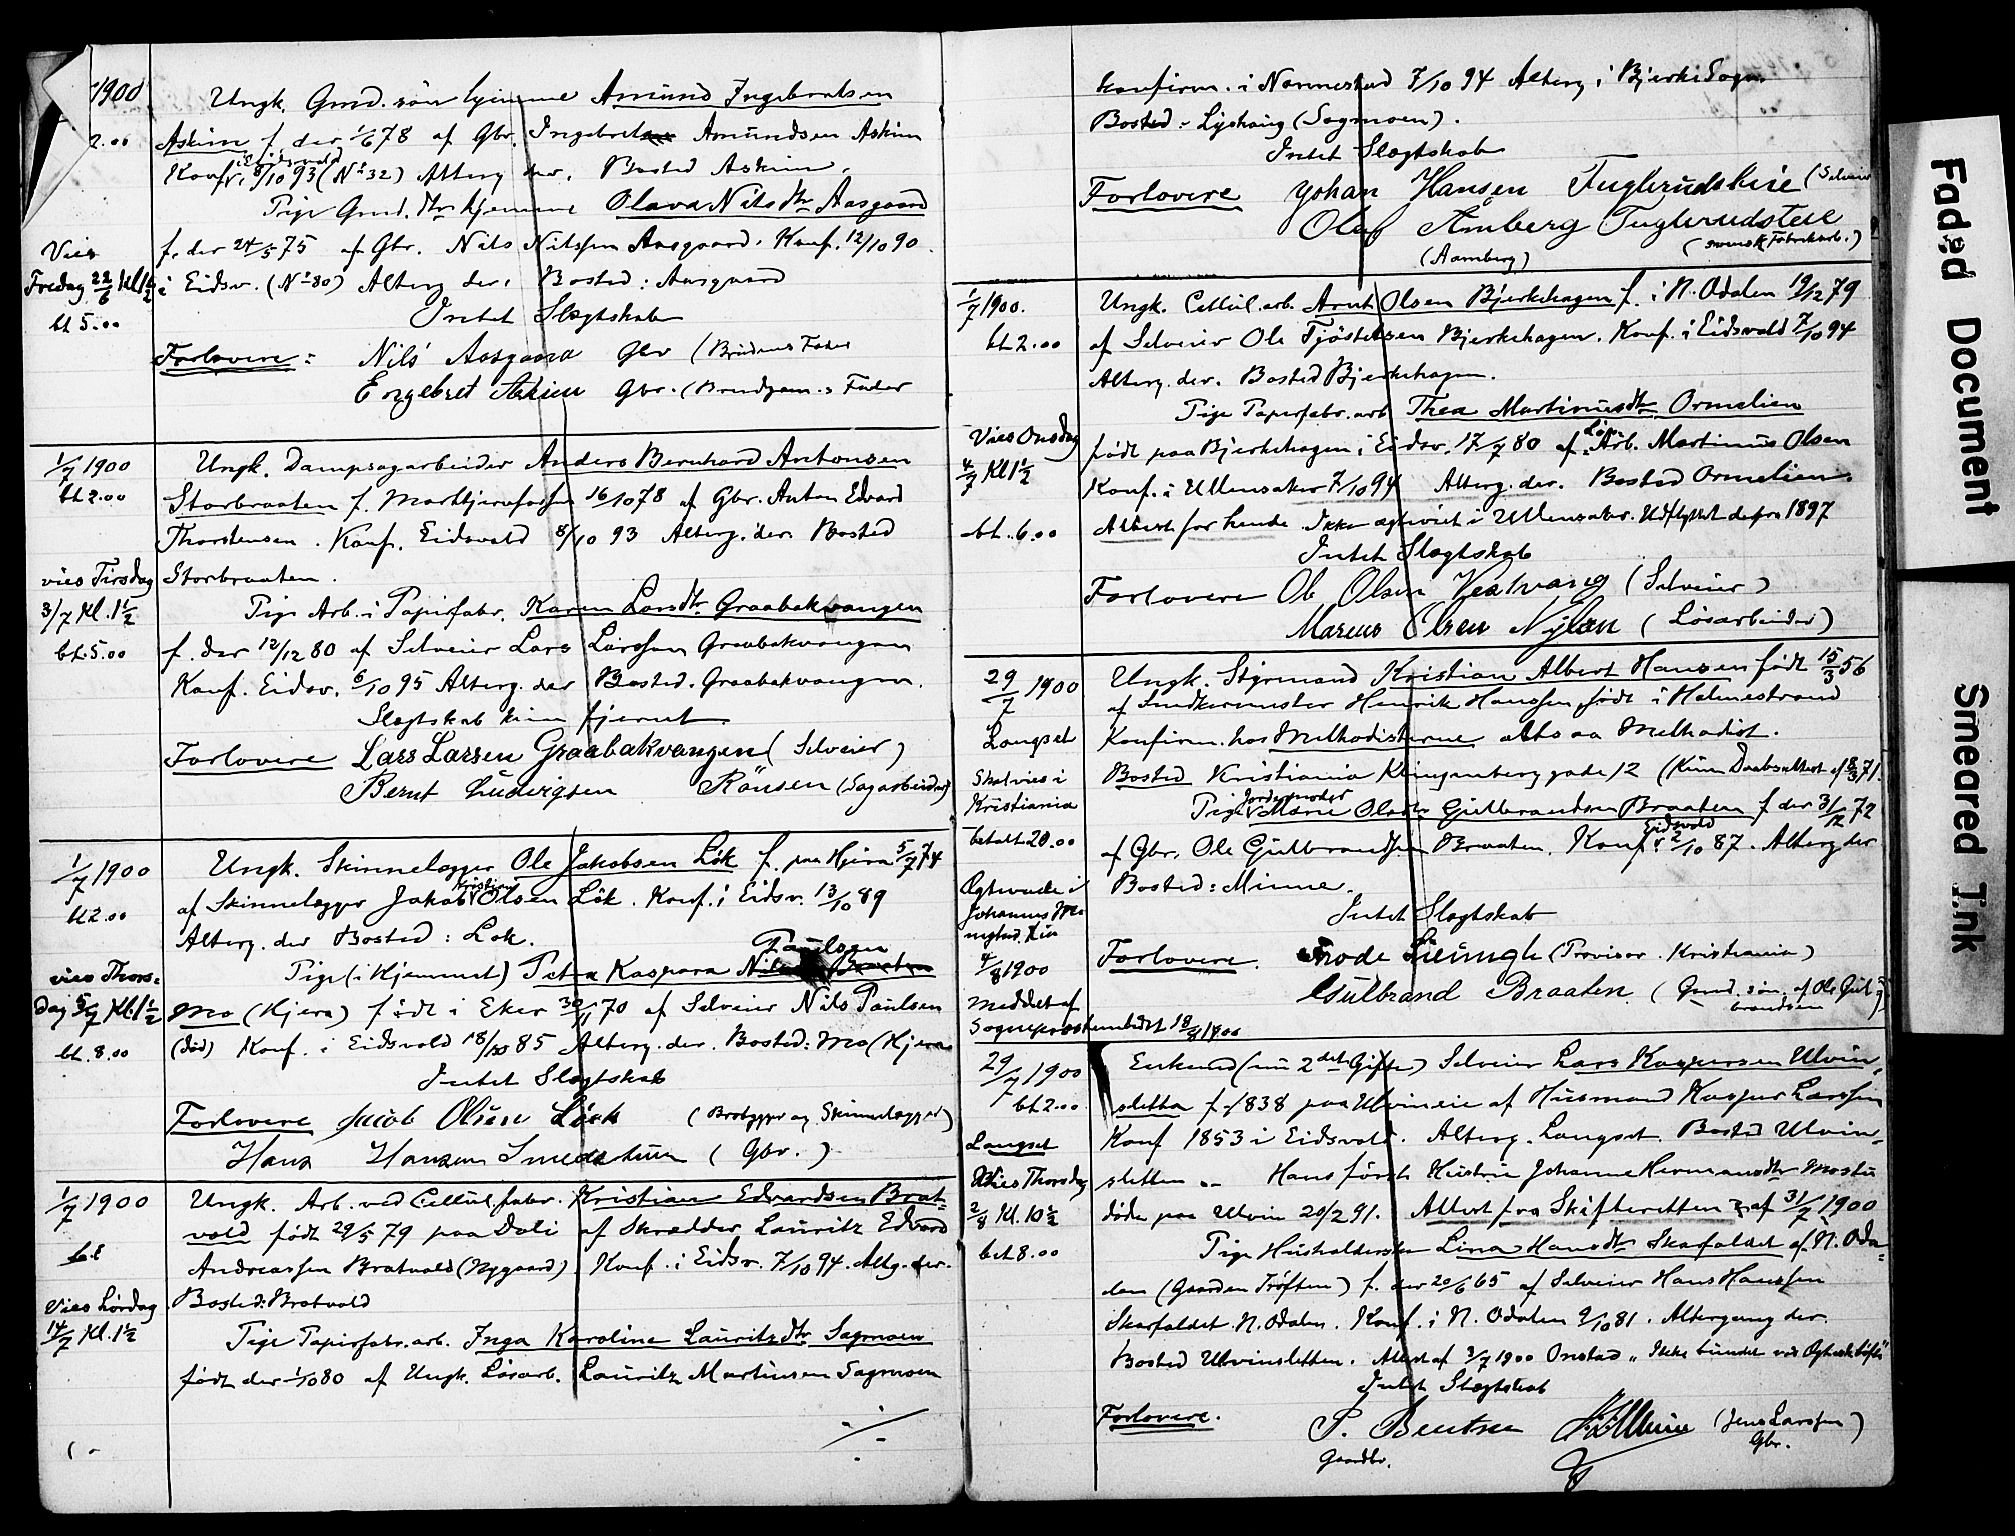 1900
Ungk. Gmd. søn hjemme Amund Ingebretsen
2.00
Askim f. der 1/6 78 af Gbr. Ingebret Amundsen Askim
i Eidsvold
Konf. 8/10 93 (No 32) Alterg. der. Bosted Askim.
Pige Gmd. dtr hjemme Olava Nilsdtr Aasgaard
f. der 24/5 75 af Gbr. Nils Nilssen Aasgaard. Konf. 12/10 90
Vies
Fredag 22/6 Kl 1 1/2
i Eidsv. (No 80) Alterg. der. Bosted: Aasgaard
bt 5.00
Intet Slægtskab
Forlovere: Nils Aasgaard Gbr (Brudens Fader
Engebret Askim Gbr. (Brudgom.s Fader
1/7 1900
Ungk. Dampsagarbeider Anders Bernhard Antonsen
bt 2.00
Storbraaten f. 16/10 78 af Gbr. Anton Edvard
Thorstensen. Konf. Eidsvold 8/10 93 Alterg. der. Bosted
vies Tirsdag
Storbraaten.
3/7 Kl. 1 1/2
Pige Arb. i Papirfabr. Karen Larsdtr Graabakvangen
bt. 5.00
f. der 12/12 80 af Selveier Lars Larssen Graabakvangen
Konf. Eidsv. 6/10 95 Alterg. der Bosted. Graabakvangen.
Slægtskab kun fjernt
Forlovere Lars Larsen Graabakvangen (Selveier)
Bernt Ludvigsen Rånsen (Sagarbeider)
1/7 1900
Ungk. Skinnelægger Ole Jakobsen Løk f. paa Hjera 5/7 74
bt 2.00
Kristian
af Skinnelægger Jakob Olsen Løk. Konf. i Eidsv. 13/10 89
Alterg. der Bosted: Løk.
Paulsen
Pige (i Hjemmet) Petra Kaspara
vies Thors-
dag 5/7 Kl. 1 1/2
Mo (Hjera) født i Eker 30/11 70 af Selveier Nils Paulsen
bt. 8.00
(død) Konf. i Eidsvold 18/10 85 Alterg. der. Bosted: Mo (Hjera
Intet Slægtskab
Forlovere Jacob Olsen Løek (Brobygger og Skinnelægger)
Hans Hansen Smedstuen (Gbr.)
1/7 1900
Ungk. Arb. ved Cellul.fabr. Kristian Edvardsen Brat-
bt
vold født 29/5 79 paa Dali af Skrædder Lauritz Edvard
Andreassen Bratvold (Nygaard) Konf. i Eidsv. 7/10 94. Altg. der.
Vies Lørdag
Bosted: Bratvold
14/7 Kl. 1 1/2
Pige Papirfabr. arb. Inga Karoline Lauritzdtr Sagmoen
født der 1/10 80 af Ungk. Løsarb. Lauritz Martinsen Sagmoen
./.
konfirm. i Nannestad 7/10 94 Alterg. i Bjerke Sogn
Bosted: Lyshaug (Sagmoen).
Intet Slægtskab
Forlovere Johan Hansen Fuglerudsteie (Selveier
Olaf Amberg Fuglerudsteie
(Aamberg) (svensk Fabrikarb.)
1/7 1900.
Ungk. Cellul. arb. Arnt Olsen Bjerkehagen f. i N. Odalen 19/12 79
bt 2.00
af Selveier Ole Tjøstelsen Bjerkehagen. Konf. i Eidsvold 7/10 94
Alterg. der. Bosted Bjerkehagen.
Pige Papirfabr. arb. Thea Martinusdtr Ormelien
Vies Onsdag
4/7 Kl 1 1/2
født paa Bjerkehagen i Eidsv. 17/7 80 af Løs. Arb. Martinus Olsen
Konf. i Ullensaker 7/10 94 Alterg. der. Bosted Ormelien.
bt. 6.00
Attest for hende Ikke ægteviet i Ullensaker. Udflyttet derfra 1897
Intet Slægtskab
Forlovere Ole Olsen Vestvang (Selveier)
Marius Olsen Nylæn (Løsarbeider)
29/7 1900
Ungk. Styrmand Kristian Albert Hansen født 15/3 56
af Snedkermester Henrik Hanssen født i Holmestrand
Langset
Konfirm. hos Methodisterne altsaa Methodist.
Skal vies i
Kristiania
Bosted Kristiania Klingenberggade 12 (Kun Daabsattest af 8/3 71.
Jordemoder
Pige Marie Olsdtr Gulbrandsen Braaten f. der 31/12 72
betalt 20.00
Eidsvold
af Gbr. Ole Gulbrandsen Braaten. Konf. 2/10 87. Alterg der
Ægteviede i
Bosted: Minne.
Johannes Me-
nighed. Kra
Intet Slægtskab
4/8 1900
Forlovere. Frode (Provisor. Kristiania)
Meddelt af
Gulbrand Braaten (Gmd. søn af Ole Gul-
brandsen)
Sogneprestembedet 18/8 1900
29/7 1900
Enkemd (nu 2det Gifte) Selveier Lars Kaspersen Ulvin-
bt 2.00
sletta f. 1838 paa Ulvineie af Husmand Kasper Larssen
Langset
Konf 1853 i Eidsvold. Alterg. Langset. Bosted Ulvin-
Vies Thorsdag
sletten. – Hans første Hustru Johanne Hermansdtr Mostu
2/8 Kl. 10 1/2
døde paa Ulvin 20/2 91. Attest fra Skifteretten af 31/7 1900
bet 8.00
Pige Husholderske Lina Hansdtr Skarfaldet af N. Oda-
len (Gaarden Trøften) f. der 20/6 65 af Selveier Hans Hanssen
Skarfaldet N. Odalen. Konf. i N. Odalen 9/10 81. Altergang der.
Bosted Ulvinsletten. Attest af 3/7 1900 Onstad „Ikke bundet ved Ægteskabsløfte"
Intet Slægtskab
Forlovere. P. Bentsen (Jens Larssen)
Gaardbr. Gbr.
Faded Document
Smeared Ink